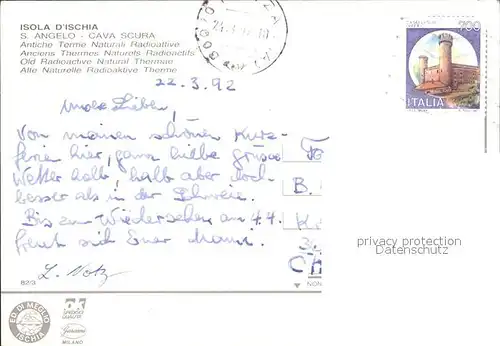 ISOLA D'ISCHIA
S. ANGELO - CAVA SCURA
Antiche Terme Naturali Radioattive
Anciens Thermes Naturels Radioactifs
Old Radioactive Natural Thermae
Alte Naturelle Radioaktive Therme
700
ITALIA
22.3.92
Lieben,
Von meinen schönen Kurz-
ferien hier, ganz liebe Grüsse
Wetter halb halb aber doch
besser als in der Schweiz.
Bis zum Wiedersehen am 4.4.
freut sich Euer
L. Notz
B.
K.
3
CH
privacy protection
Datenschutz
82/3
NON
ED. DI MEGLIO
ISCHIA
MILANO